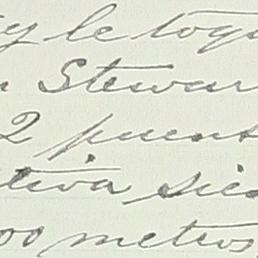 y le toqu
n Stewar
2 puent
tiva sien
00 metros